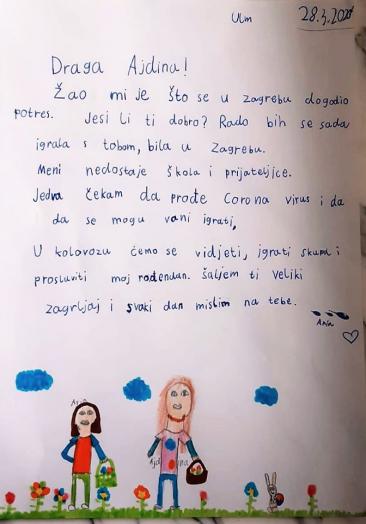 Ulm
28.3.2020
Draga Ajdina!
Žao mi je što se u Zagrebu dogodio
potres. Jesi li ti dobro? Rado bih se sada
igrala s tobom, bila u Zagrebu.
Meni nedostaje škola i prijateljice.
Jedva čekam da prođe Corona virus i da
da se mogu vani igrati,
U kolovozu ćemo se vidjeti, igrati skupa i
proslaviti moj rođendan. Šaljem ti veliki
zagrljaj i svaki dan mislim na tebe.